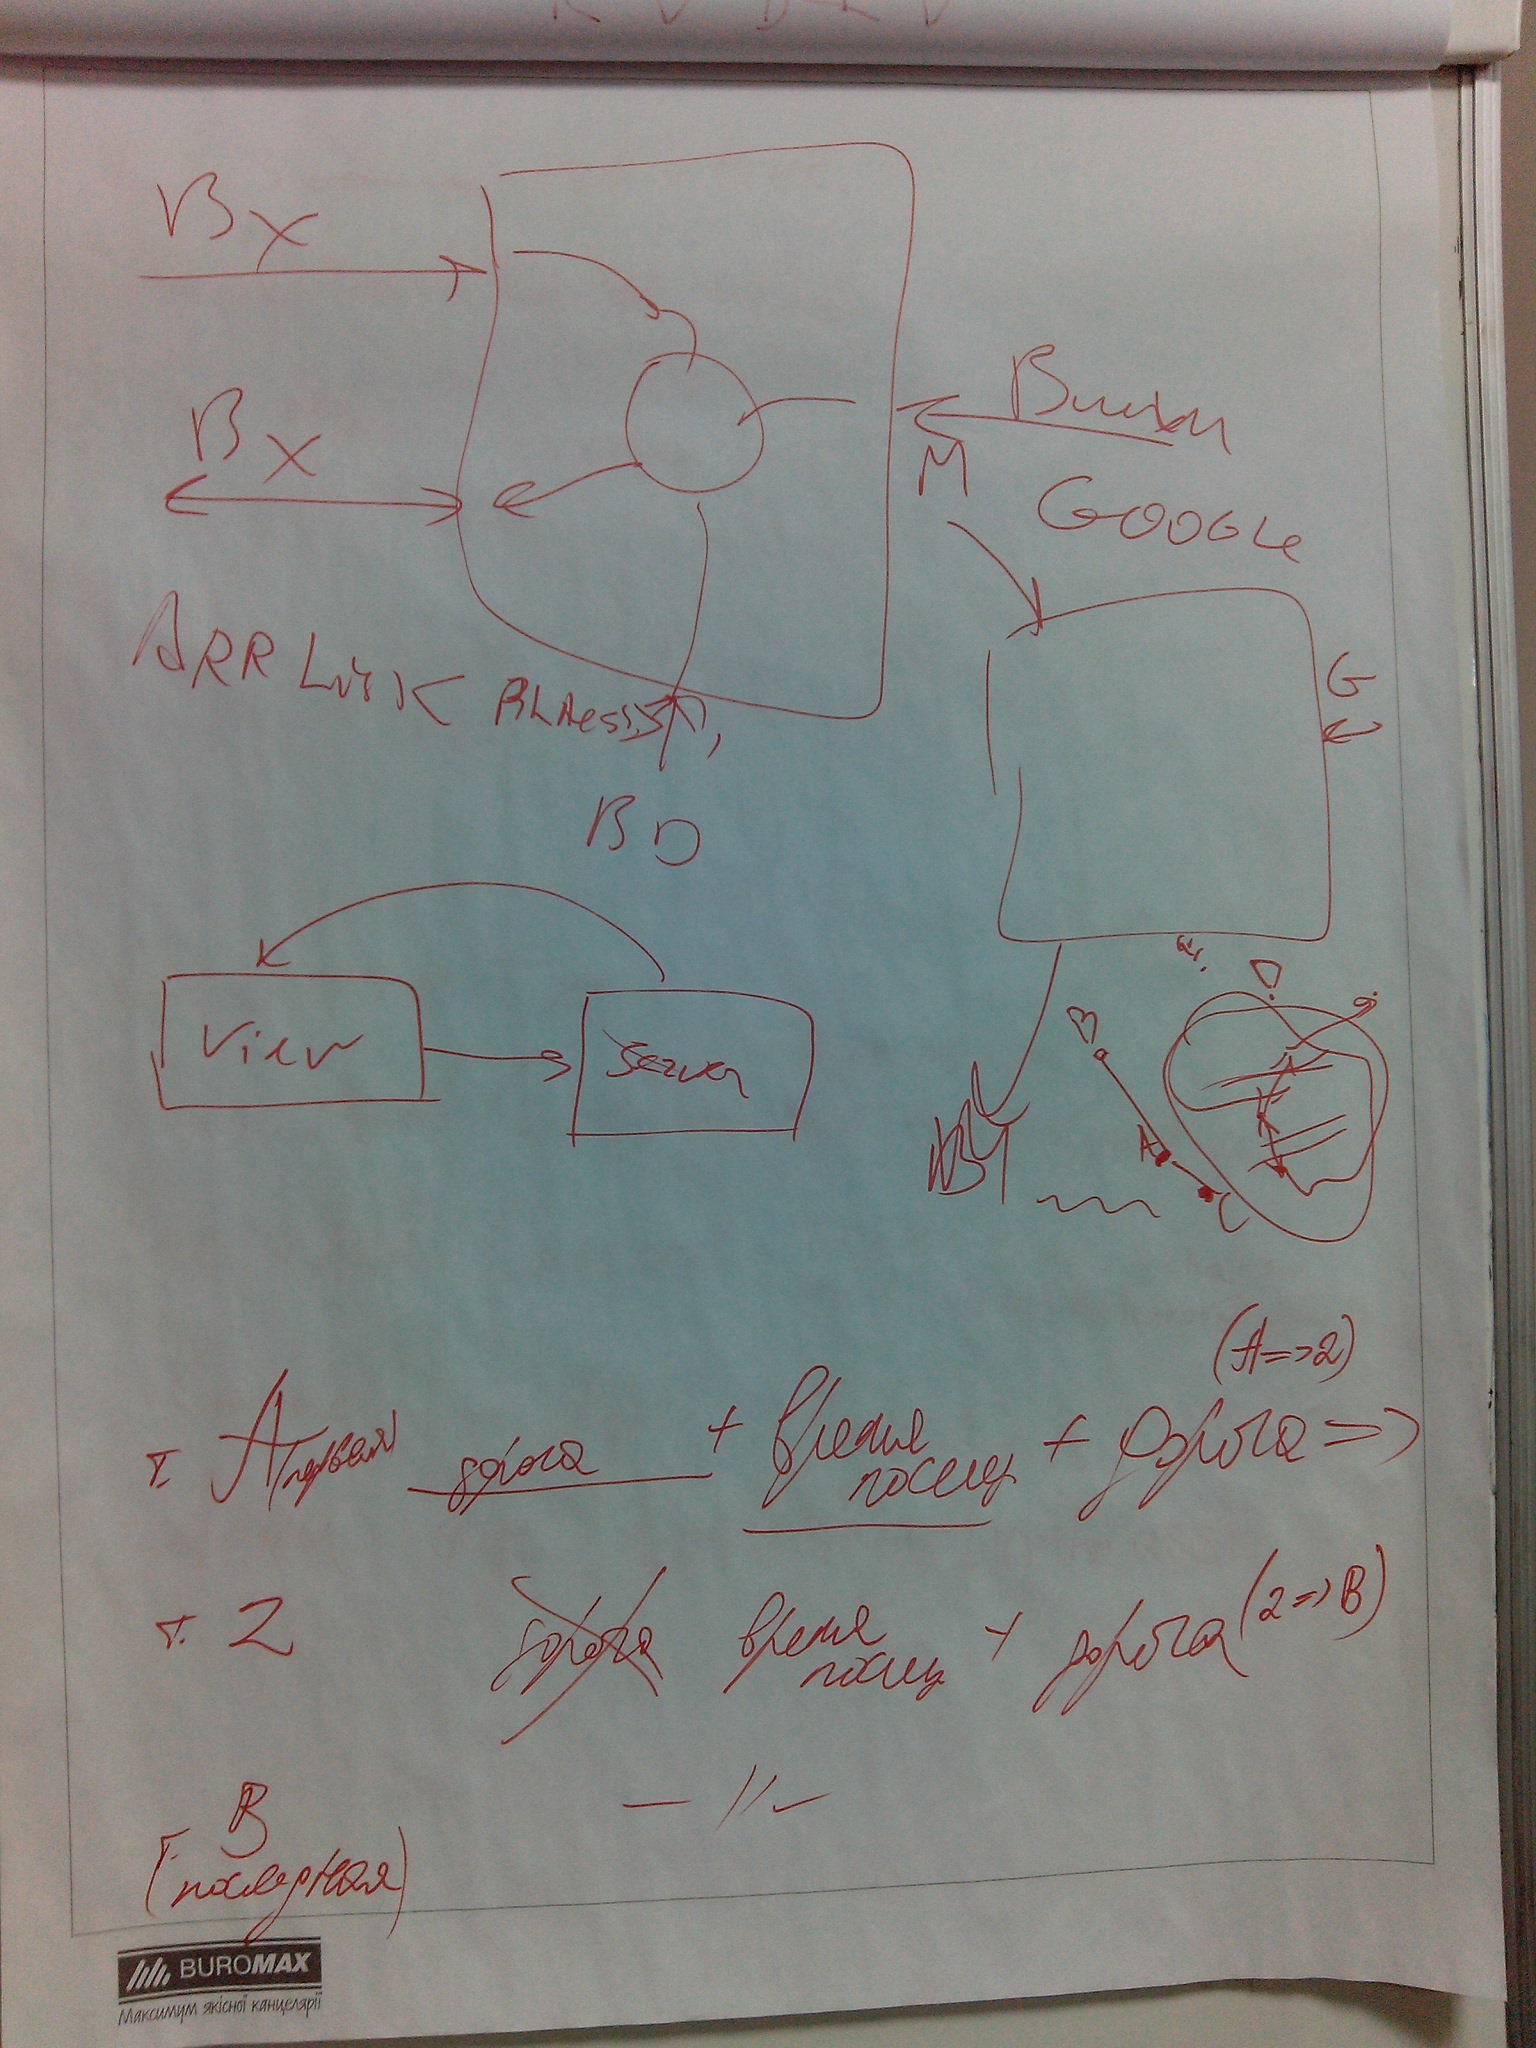 Вх
Вх
М
GOOGLE
ARR Link
BD
G
View
Server
D
B
A
C
(А=>2)
т. А первая дорога + время посещ + дорога =>
т. 2 дорога время посещ + дорога (2=>В)
В — // —
(т. последняя)
BUROMAX
Максимум якісної канцелярії